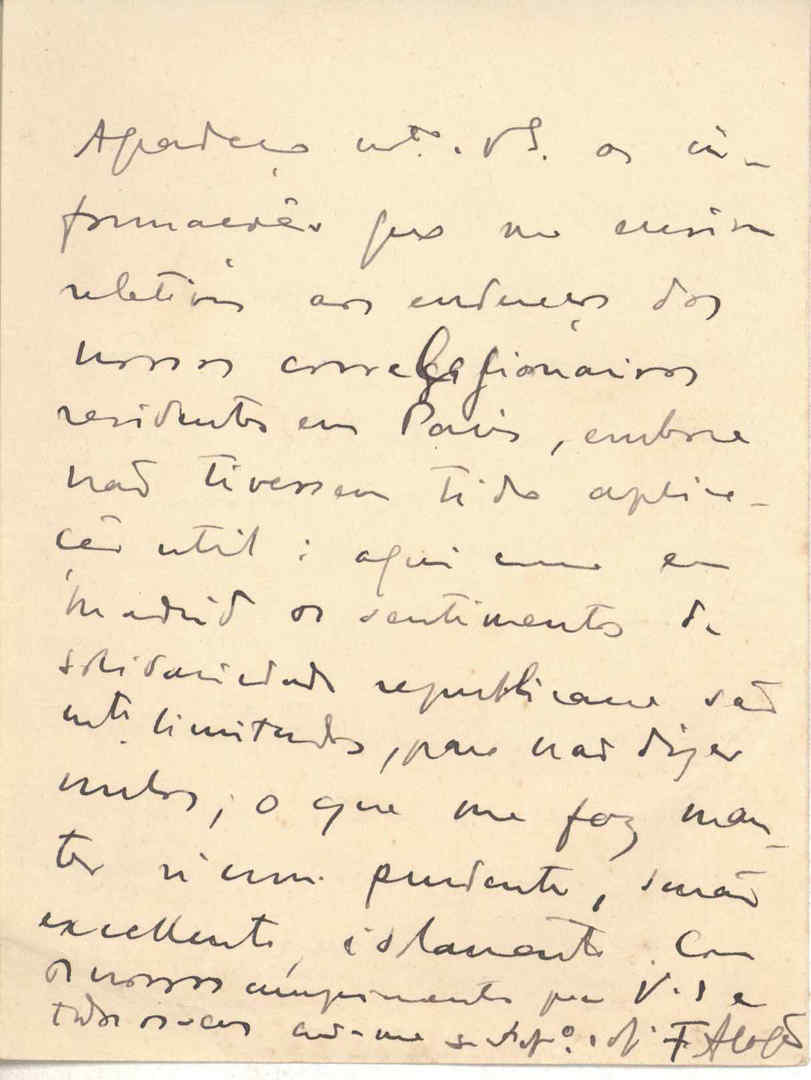 Agradeço mt.º a V. S. as in-
formações que me enviou
relativas aos endereços dos
nossos correligionários
residentes em Paris, embora
não tivessem tido aplica-
ção util; aqui como em
Madrid os sentimentos de
solidariedade republicana são
mt. limitados, para não dizer
nulos; o que me faz man-
ter n'um prudente, senão
excellente, isolamento. Com
os nossos cumprimentos para V. S. e
todos os seus